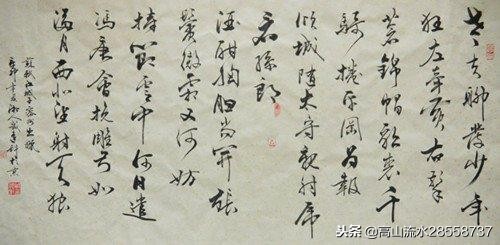 老夫聊發少年
狂左牽黃右擎
蒼錦帽貂裘千
騎捲平岡為報
傾城隨太守親射虎
看孫郎
酒酣胸膽尚開張
鬢微霜又何妨
持節雲中何日遣
馮唐會挽雕弓如
滿月西北望射天狼
蘇軾江城子密州出獵
头条 @高山流水28558737